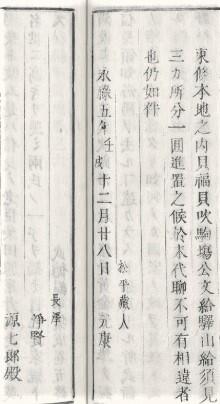 東條本地之内貝福貝吹駒場公文給驛山給須見
三カ所分一圓進置之候於末代聊不可有相違者
也仍如件
永祿五年壬戌十二月廿八日
松平藏人
元康
長澤
淨賢
源七郎殿